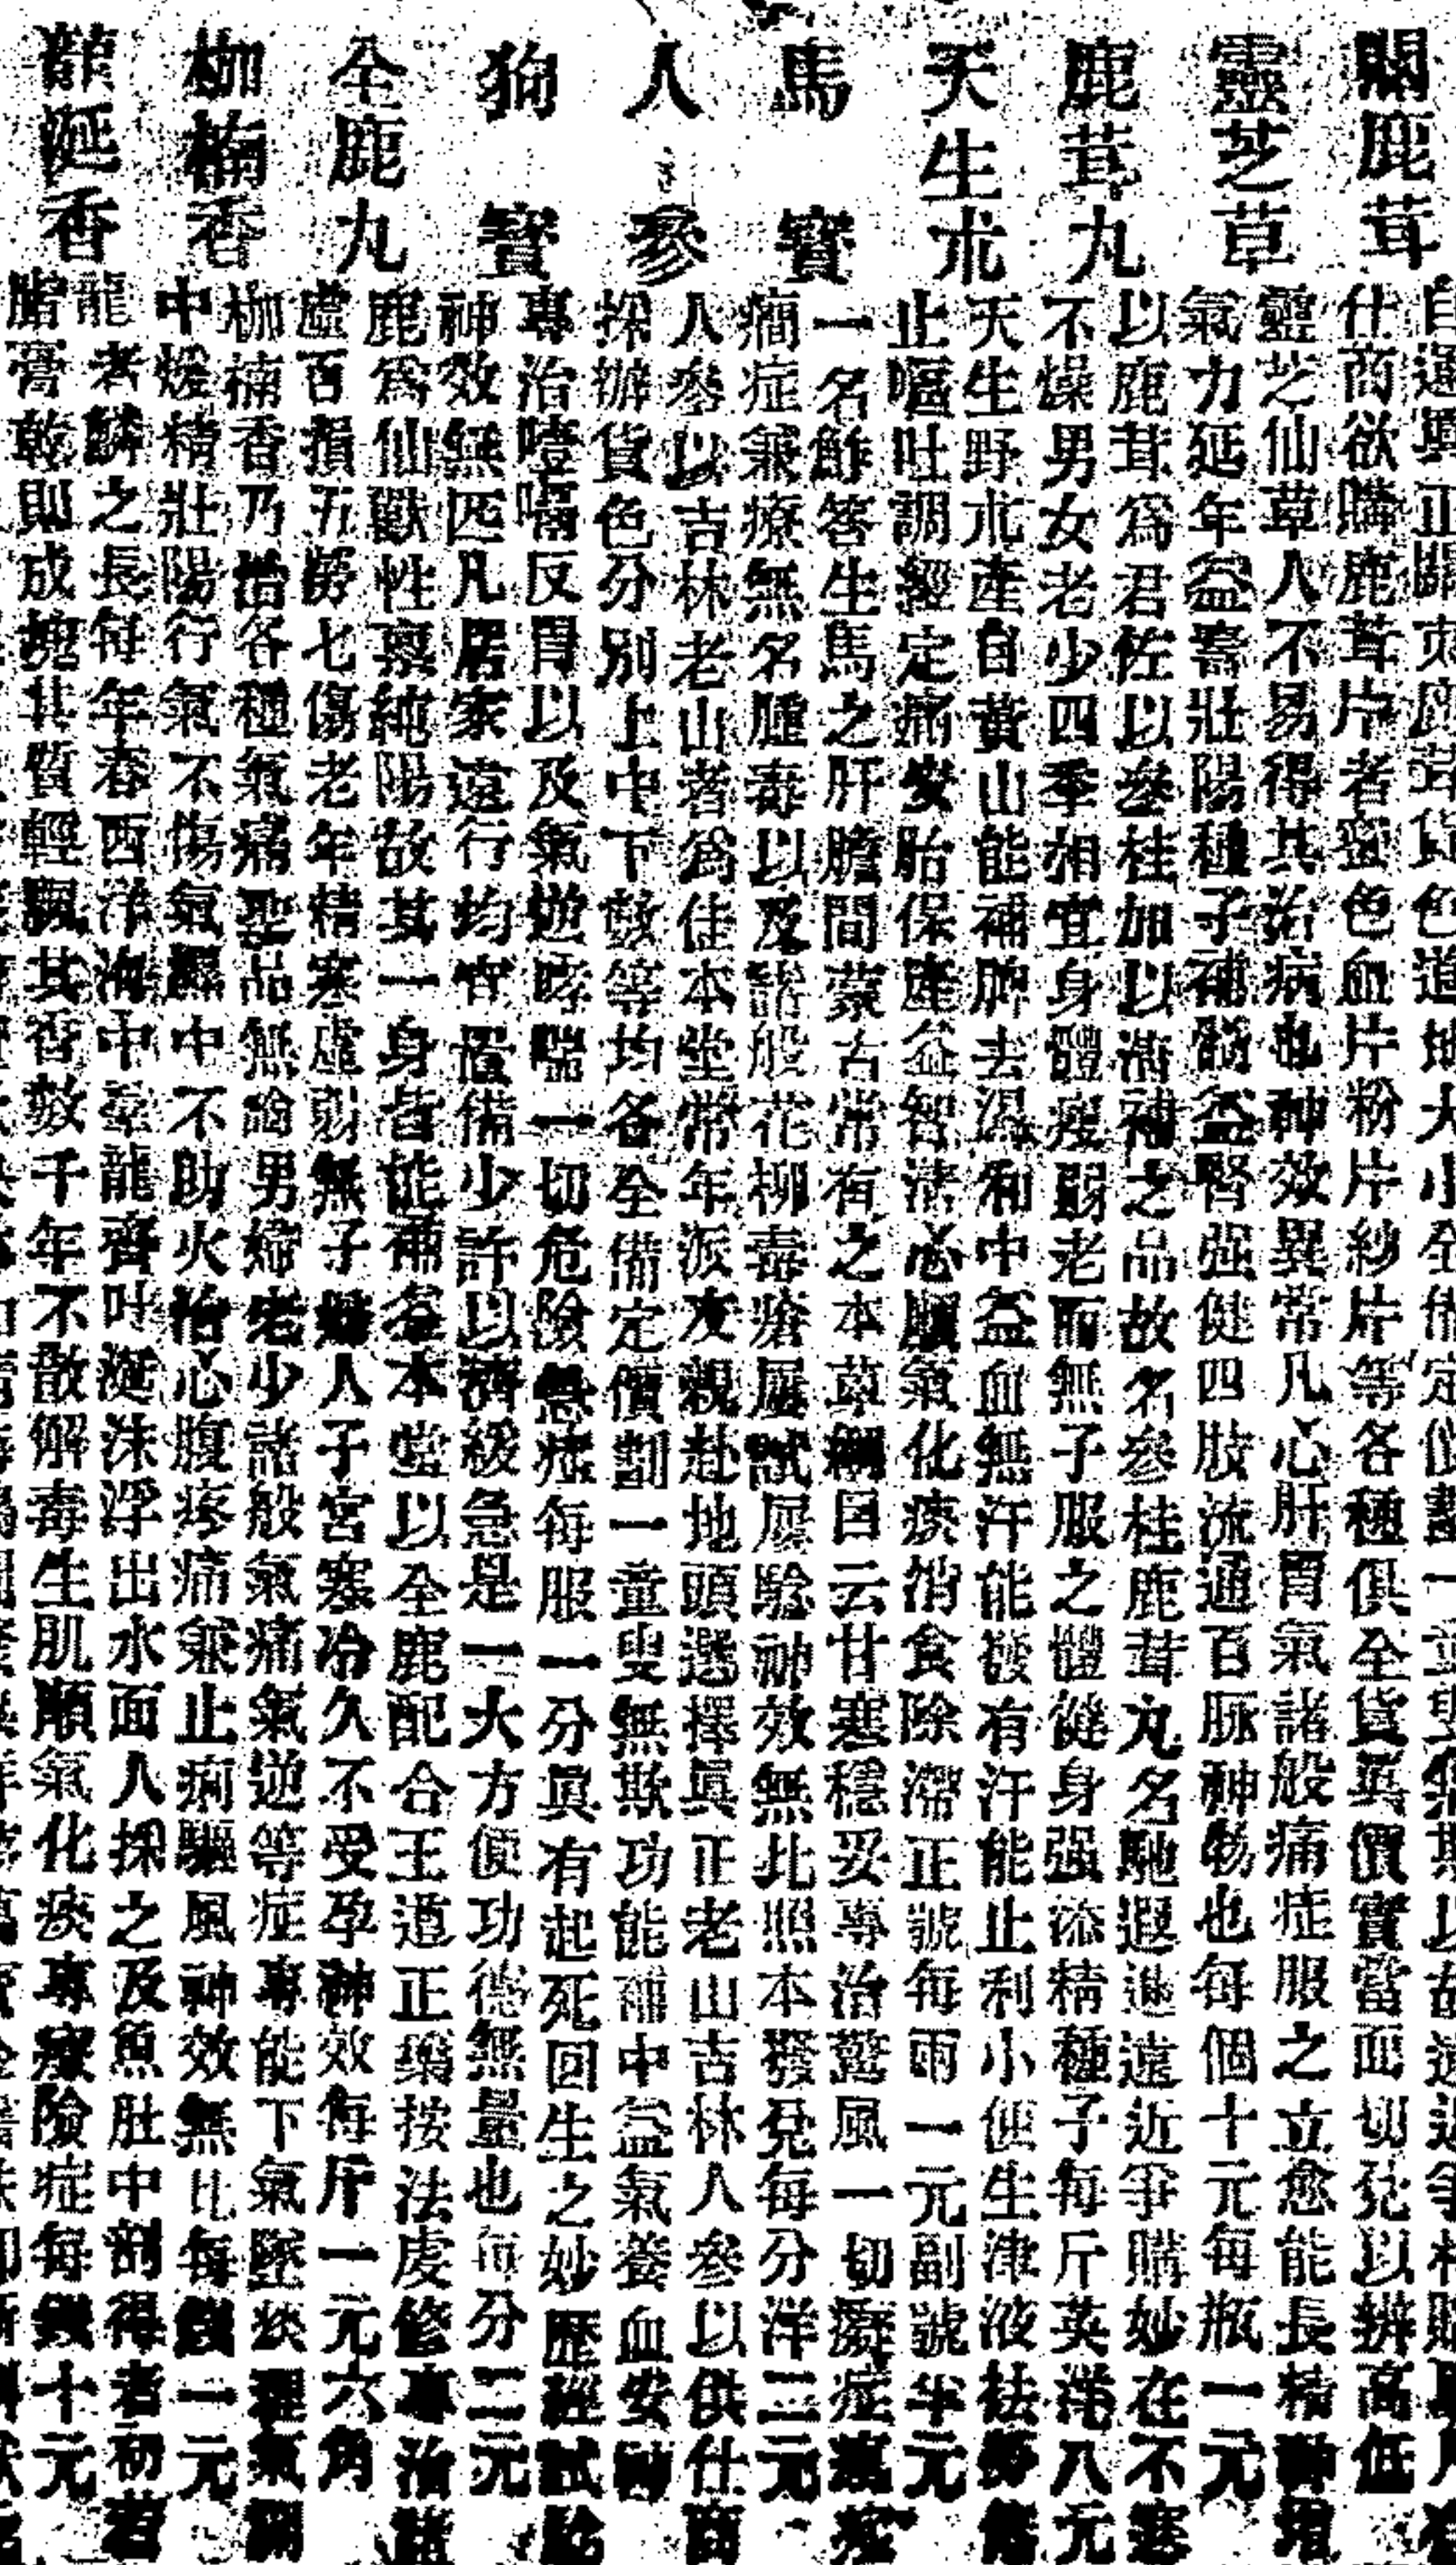 關鹿茸
仕商欲購鹿茸片者蜜色血片粉片紗片等各種俱全貨真價實當面切兌以辨高低
靈芝草
靈芝仙草人不易得其治病也神效異常凡心肝胃氣諸般痛症服之立愈能長精神增
氣力延年益壽壯陽種子補髓益腎强健四肢流通百脈神物也每個十元每瓶一元
鹿茸丸
以鹿茸爲君佐以參桂加以滿補之品故名參桂鹿茸丸名馳遐邇遠近爭購妙在不寒
不燥男女老少四季相宜身體瘦弱老而無子服之體健身强添精種子每斤英洋八元
天生朮
天生野朮產自黃山能補脾去濕和中益血無汗能發有汗能止利小便生津液祛勞倦
止嘔吐調經定痛安胎保產益智清心順氣化痰消食除滯正號每兩一元副號半元
馬寶
一名鮓答生馬之肝膽間蒙古常有之本草綱目云甘寒穩妥專治驚風一切癡症癲癎
癎症兼療無名腫毒以及諸般花柳毒瘡屢試屢驗神效無比照本發兌每分洋二元
人參
人參以吉林老山者爲佳本堂常年派友親赴地頭選擇真正老山吉林人參以供仕商
採辦貨色分別上中下數等均各全備定價劃一童叟無欺功能補中益氣養血安神
狗寶
專治噎嗝反胃以及氣逆哮喘一切危險急症每服一分眞有起死回生之妙歷經試驗
神效無匹凡居家遠行均宜置備少許以濟緩急是一大方便功德無量也每分二元
全鹿丸
鹿爲仙獸性禀純陽故其一身皆能補益本堂以全鹿配合王道正藥按法虔修專治諸
虛百損五勞七傷老年精寒虛弱無子婦人子宮寒冷久不受孕神效每斤一元六角
枷楠香
枷楠香乃治各種氣痛聖品無論男婦老少諸般氣痛氣逆等症專能下氣墜痰理氣調
中煖精壯陽行氣不傷氣溫中不助火治心腹疼痛兼止痢驅風神效無比每錢一元
龍涎香
龍者鱗之長每年春西洋海中羣龍齊吐涎沫浮出水面人採之及魚肚中剖得者初若
脂膏乾則成塊其質輕飄其香數千年不散解毒生肌順氣化痰專療險症每錢十元